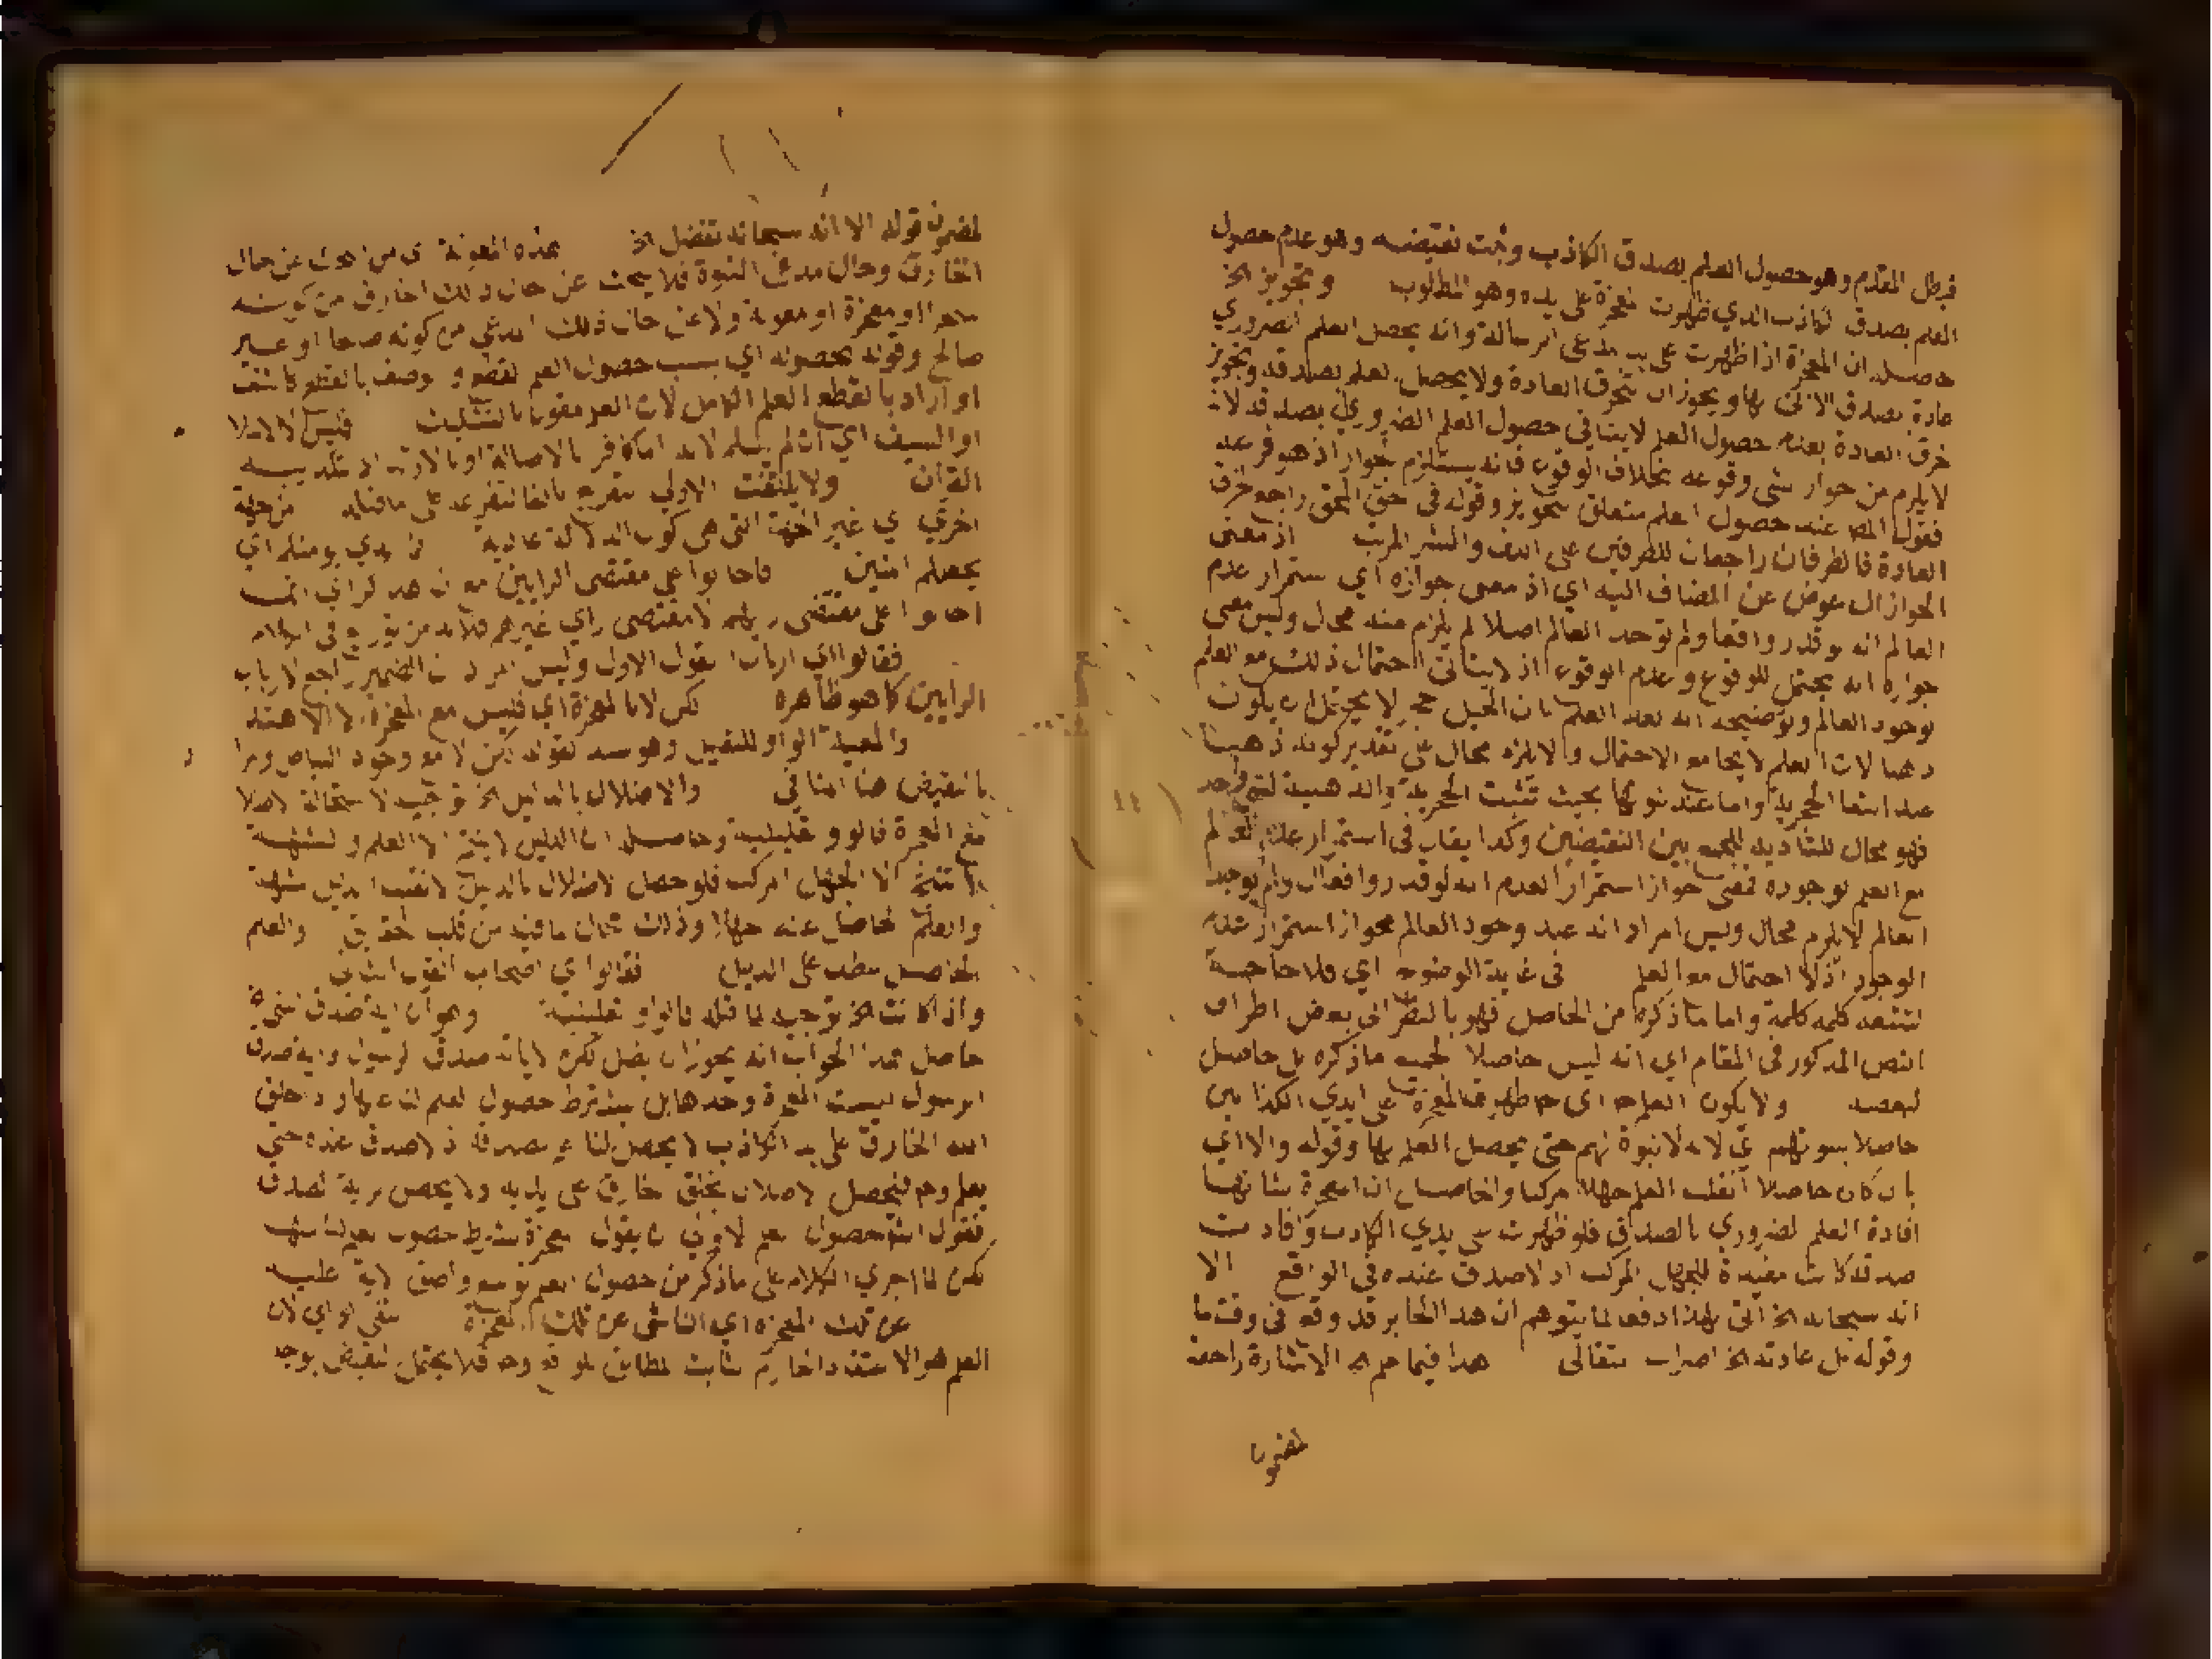 فبطل المقدم وهو حصول العلم بصدق الكاذب وثبت نقيضه وهو عدم حصول
العلم بصدق الكاذب الذي ظهرت المعجزة على يده وهو المطلوب وتجويز الخ
حاصله ان المعجزة اذا ظهرت على يد مدعى الرسالة وانه يحصل العلم الضروري
عادة بصدق الاتي بها ويجوز ان تنخرق العادة ولا يحصل العلم بصدقه وتجويز
خرق العادة بعدم حصول العلم لا ينافي حصول العلم الضروري بصدقه لانه
لا يلزم من جواز شي وقوعه بخلاف الوقوع فانه يستلزم الجواز اذ هو فرعه
فقول المص عند حصول العلم متعلق بتجويز وقوله في حق المحق راجع لخرق
العادة فالظرفان راجعان للطرفين على اللف والنشر المرتب اذ معنى
الجواز ال عوض عن المضاف اليه اي اذ معنى جوازه اي استمرار عدم
العالم انه لو قدر واقعا ولم توجد العالم اصلا لم يلزم منه محال وليس معنى
جوازه انه يحتمل للوقوع وعدم الوقوع اذ لا يتاتى احتمال ذلك مع العلم
بوجود العالم وتوضيحه انه بعد العلم بان الجبل حجر لا يحتمل ان يكون
ذهبا لان العلم لا يجامع الاحتمال والا يلزم محال على تقدير كونه ذهبا
عند انتفا الحجرية واما عند ثبوتها بحيث تثبت الحجرية والذهبية لشي واحد
فهو محال للتاديه للجمع بين النقيضين وكذا يقال في استمرار عدم العالم
مع العلم بوجوده فمعنى جواز استمرار العدم انه لو قدر واقعا ولم يوجد
العالم لا يلزم محال وليس المراد انه عند وجود العالم يجوز استمرار عدم
الوجود اذ لا احتمال مع العلم في غاية الوضوح اي فلا حاجة
لتتبعه كلمه كلمة واما ما ذكره من الحاصل فهو بالنظر الى بعض اطراف
النص المذكور في المقام اي انه ليس حاصلا لجميع ما ذكره بل حاصل
لبعضه ولا يكون العلم اي ظهرت المعجزة على ايدي الكذابين
حاصلا بنبوتهم اي لانه لا نبوة لهم حتى يحصل العلم بها وقوله والا اي
بان كان حاصلا انقلب العلم جهلا مركبا والحاصل ان المعجزة شانها
افادة العلم الضروري بالصدق فلو ظهرت على يدي الكاذب وافادت
صدقه كانت مفيدة للجهل المركب اذ لا صدق عنده في الواقع الا
انه سبحانه الخ اتى بهذا دفعا لما يتوهم ان هذا الجايز قد وقع في وقت ما
وقوله بل عادته الخ اضراب انتقالى هذا فيما الاشارة راجعة
لمضمون
لمضمون قوله الا انه سبحانه تفضل الخ هذه المعونة اي من البحث عن حال
الخارق وحال مدعى النبوة فلا يبحث عن حال ذلك الخارق من كونه
سحرا او معجزة او معونة ولا عن حال ذلك المدعي من كونه صالحا او غير
صالح وقوله بحصوله اي بسبب حصول العلم القطعي وصف بالقطع كاشف
او اراد بالقطع العلم الكامل لان العلم مقول بالتشكيك فليس الا
او السيف اي ان لم يسلم لانه اما كافر بالاصالة او بالارتداد تكذيبه
القرآن ولا يلتفت الاولى تفريعه بالفا لتفرعه على ما قبله من جهة
اخرى اي غير الجهة التى هي كون الدلالة عادية
يجعلم امنين فاجابوا على مقتضى الرايين مع ان هذا الراي انما
اجابوا على مقتضى رايهم لا مقتضى راي غيرهم فلا بد من
فقالوا اي ارباب القول الاول وليس المراد ان الضمير راجع لارباب
الرايين كما هو ظاهره لكن لا بالمعجزة اي فليس مع المعجزة الا
والمعية الواو للتعليل وهو سند لقوله لكن لا مع وجود البياض
بالنقيض هنا المنافي والاضلال بالدليل الخ توجيه لاستحالة الاضلال
مع المعجزة فالواو تعليلية وحاصله ان الدليل لا ينتج الا العلم والشبهة
لا تنتج الا الجهل المركب فلو حصل الاضلال بالدليل لانقلب الدليل شبهة
والعلم الحاصل عنه جهلا وذلك محال ما فيه من قلب الحقايق والعلم
الحاصل عطف على الدليل فقالوا اي اصحاب القول الثاني
واذا كانت الخ توجيه لما قبله فالواو تعليلية وهو ان اية صدق النبي الخ
حاصل هذا الجواب انه يجوز ان يضل لكن لا باية صدق الرسول واية صدق
الرسول ليست المعجزة وحدها بل بشرط حصول العلم لنا عنها واذا خلق
الله الخارق على يد الكاذب لا يحصل لنا علم بصدقه اذ لا صدق عنده حتى
يعلم وح فيحصل الاضلال بخلق خارق على يديه ولا يحصل برية الصدق
فقول الش حصول العلم الاولى ان يقول المعجزة بشرط حصول العلم لنا منها
لكن لما اجرى الكلام على ما ذكر من حصول العلم توسع واطلق الاية عليه
عن تلك المعجزة اي الناشى عن تلك المعجزة
العلم هو الاعتقاد الجازم الثابت المطابق للواقع وح فلا يحتمل النقيض بوجه